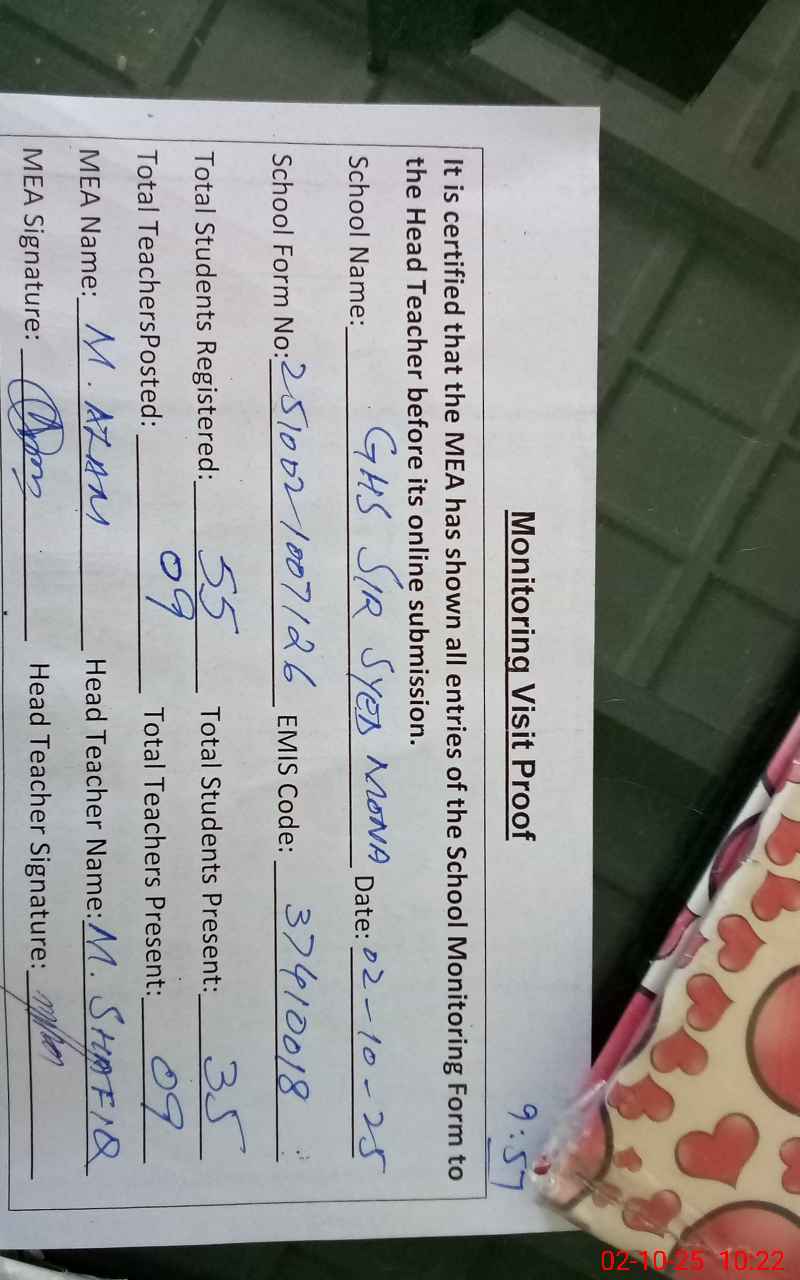 9:57
Monitoring Visit Proof
It is certified that the MEA has shown all entries of the School Monitoring Form to
the Head Teacher before its online submission.
School Name: GHS SIR SYED MONA Date: 02-10-25
School Form No: 2510021007126 EMIS Code: 37410018
Total Students Registered: 55 Total Students Present: 35
Total TeachersPosted: 09 Total Teachers Present: 09
MEA Name: M. AZAM Head Teacher Name: M. SHAFIQ
MEA Signature: Head Teacher Signature:
02-10-25 10:22